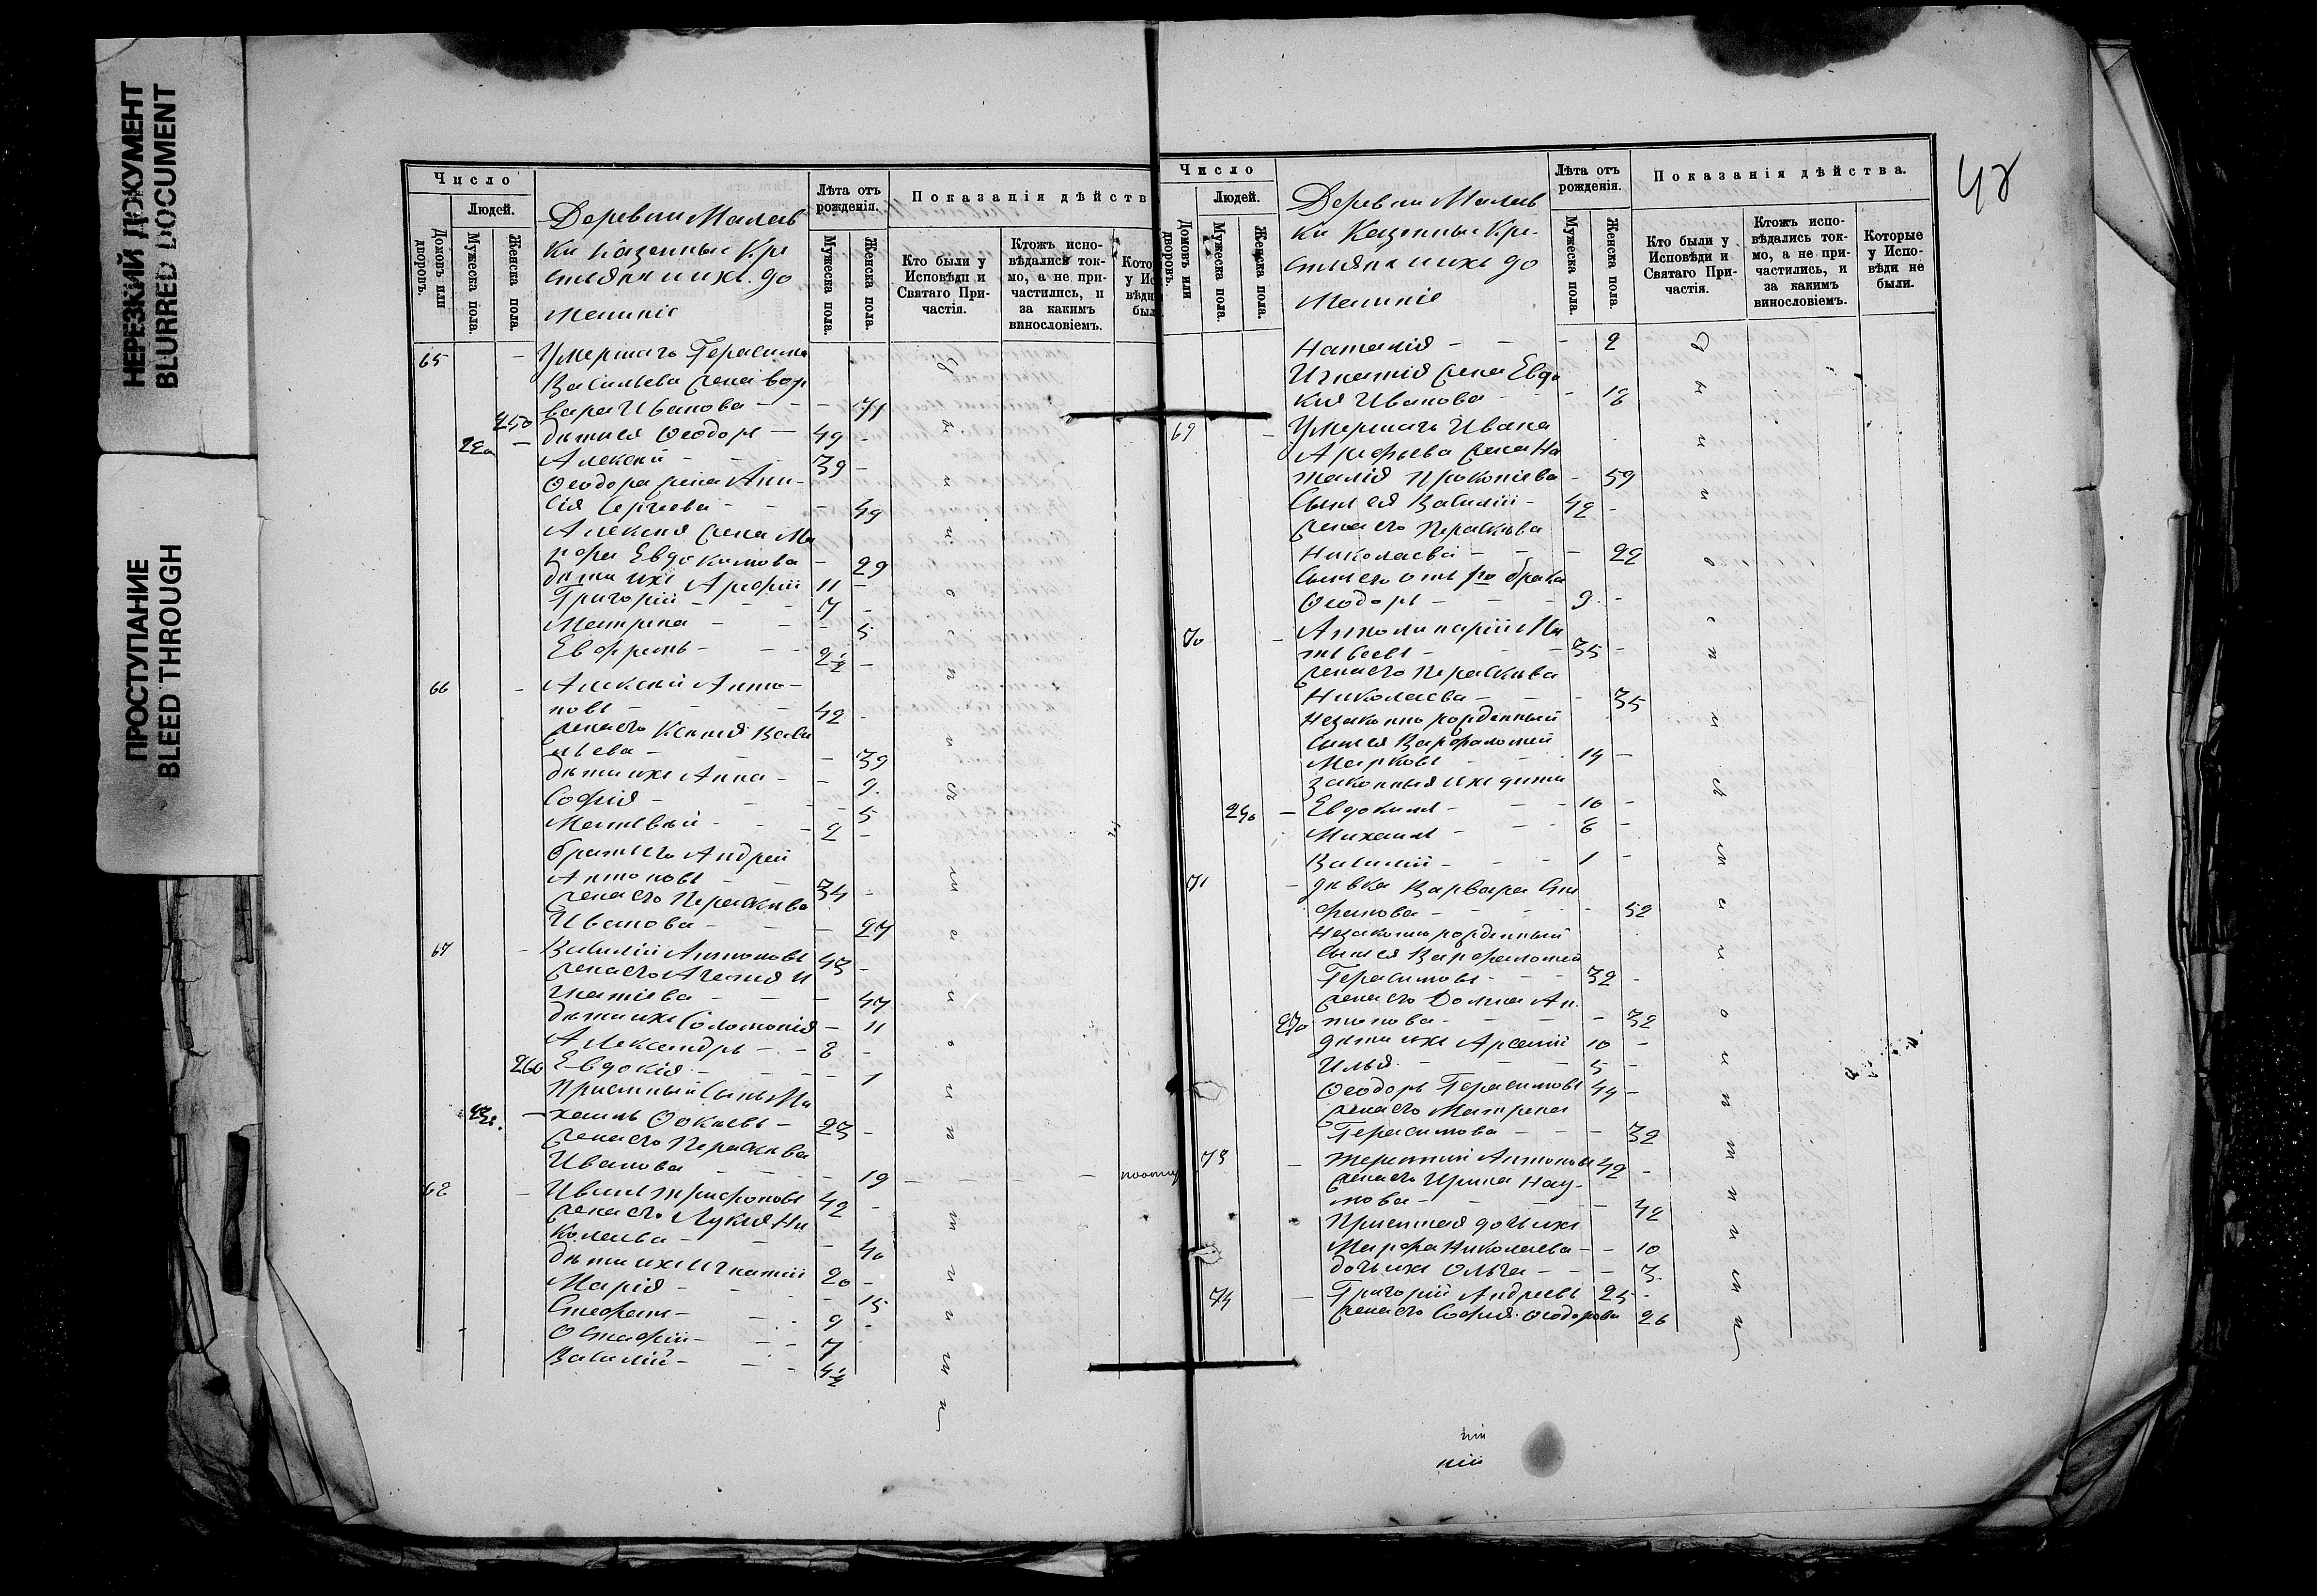 НЕРЕЗКИЙ ДОКУМЕНТ
BLURRED DOCUMENT
ПРОСТУПАНИЕ
BLEED THROUGH
Число
Людей.
Домовъ или дворовъ.
Мужеска пола.
Женска пола.
Деревни
ки Казенные Кре
стьяне и ихъ до
Лѣта отъ рожденія.
Мужеска пола.
Женска пола.
Показанія дѣйств
Кто были у Исповѣди и Святаго При-частія.
Ктожъ испо-вѣдались ток-мо, а не при-частились, и за какимъ винословіемъ.
65 – Умершаго Герасима
Васильева жена Вар
250 вара Иванова – – – 71
– дѣти ея Ѳеодоръ – 49 –
Алексѣй – – 39 –
Ѳеодора жена Ани-
сія Сергеева – – – 49
Алексѣя жена Ма
рфа Евдокимова – 29
дѣти ихъ Арефій 11 –
Григорій – – – 7 –
Матрена – – – 5
Евфремъ – – – 2½ –
66 – Алексѣй Анто-
новъ – – – 42 –
жена его Ксенія Васи
льева – – – 39
дѣти ихъ Анна – – 9.
Софія – – – 5
– – – 2 –
братъ его Андрей
Антоновъ – – 34 –
жена его Параскева
Иванова – – – 27
67 – Василій Антоновъ 43 –
жена его Агафія И
гнатіева – – – 47
дѣти ихъ Соломонія – 11
Александръ – – 8 –
260 Евдокія – – – – 1
Приемный Сынъ Ми
– хаилъ – 23 –
жена его Параскева
Иванова – – – 19 – – – –
68 – Иванъ Трифоновъ 42 –
жена его Лукія Ни
колаева – – – 40
дѣти ихъ Игнатій 20 –
Марія – – – 15
Стефанъ – – – 9 –
– – – 7
Василій – – – 4½
были у исповѣди и
48
Число
Людей.
Домовъ или дворовъ.
Мужеска пола.
Женска пола.
Деревни
ки Казенные Кре-
стьяне и ихъ до
Лѣта отъ рожденія.
Мужеска пола.
Женска пола.
Показанія дѣйства.
Кто были у Исповѣди и Святаго При-частія.
Ктожъ испо-вѣдались ток-мо, а не при-частились, и за какимъ винословіемъ.
Которые у Испо-вѣди не были.
Наталія – – – 2
Игнатія жена Евдо
кия Иванова – – 18
69 – Умершаго Ивана
Арефьева жена На
талія Прокопіева – 59
Сынъ ея Василій – 42 –
жена его Параскева
Николаева – – – 22
Сынъ его отъ 1го брака
Ѳеодоръ – – – 9 –
70 – Апполинарій Ма
твѣевъ – – – 35 –
жена его Параскева
Николаева – – – 35
Незаконнорожденный
сынъ ея Варфаломей
Марковъ – – 14 –
законныя ихъ дѣти
240 – Евдокимъ – – – 10 –
Михаилъ – – – 8 –
Василій – – – 1 –
71 – дѣвка Варвара Сте
фанова – – – – 52
Незаконнорожденный
сынъ ея Варфаломей
Герасимовъ – – – 32 –
жена его Домна Ан
270 тонова – – – – 32
дѣти ихъ Арсеній 10 –
Илья – – – 5 –
Ѳеодоръ Герасимовъ 44 –
жена его Матрена
Герасимова – – – 32
73 – Терентий Антоновъ 42 –
жена его Ирина Нау-
мова – – – 42
Приемная дочь ихъ
Марфа Николаева – – 10
дочь ихъ Ольга – – – 3.
74 – Григорій Андреевъ 25 –
жена его Софія Ѳеодорова 26